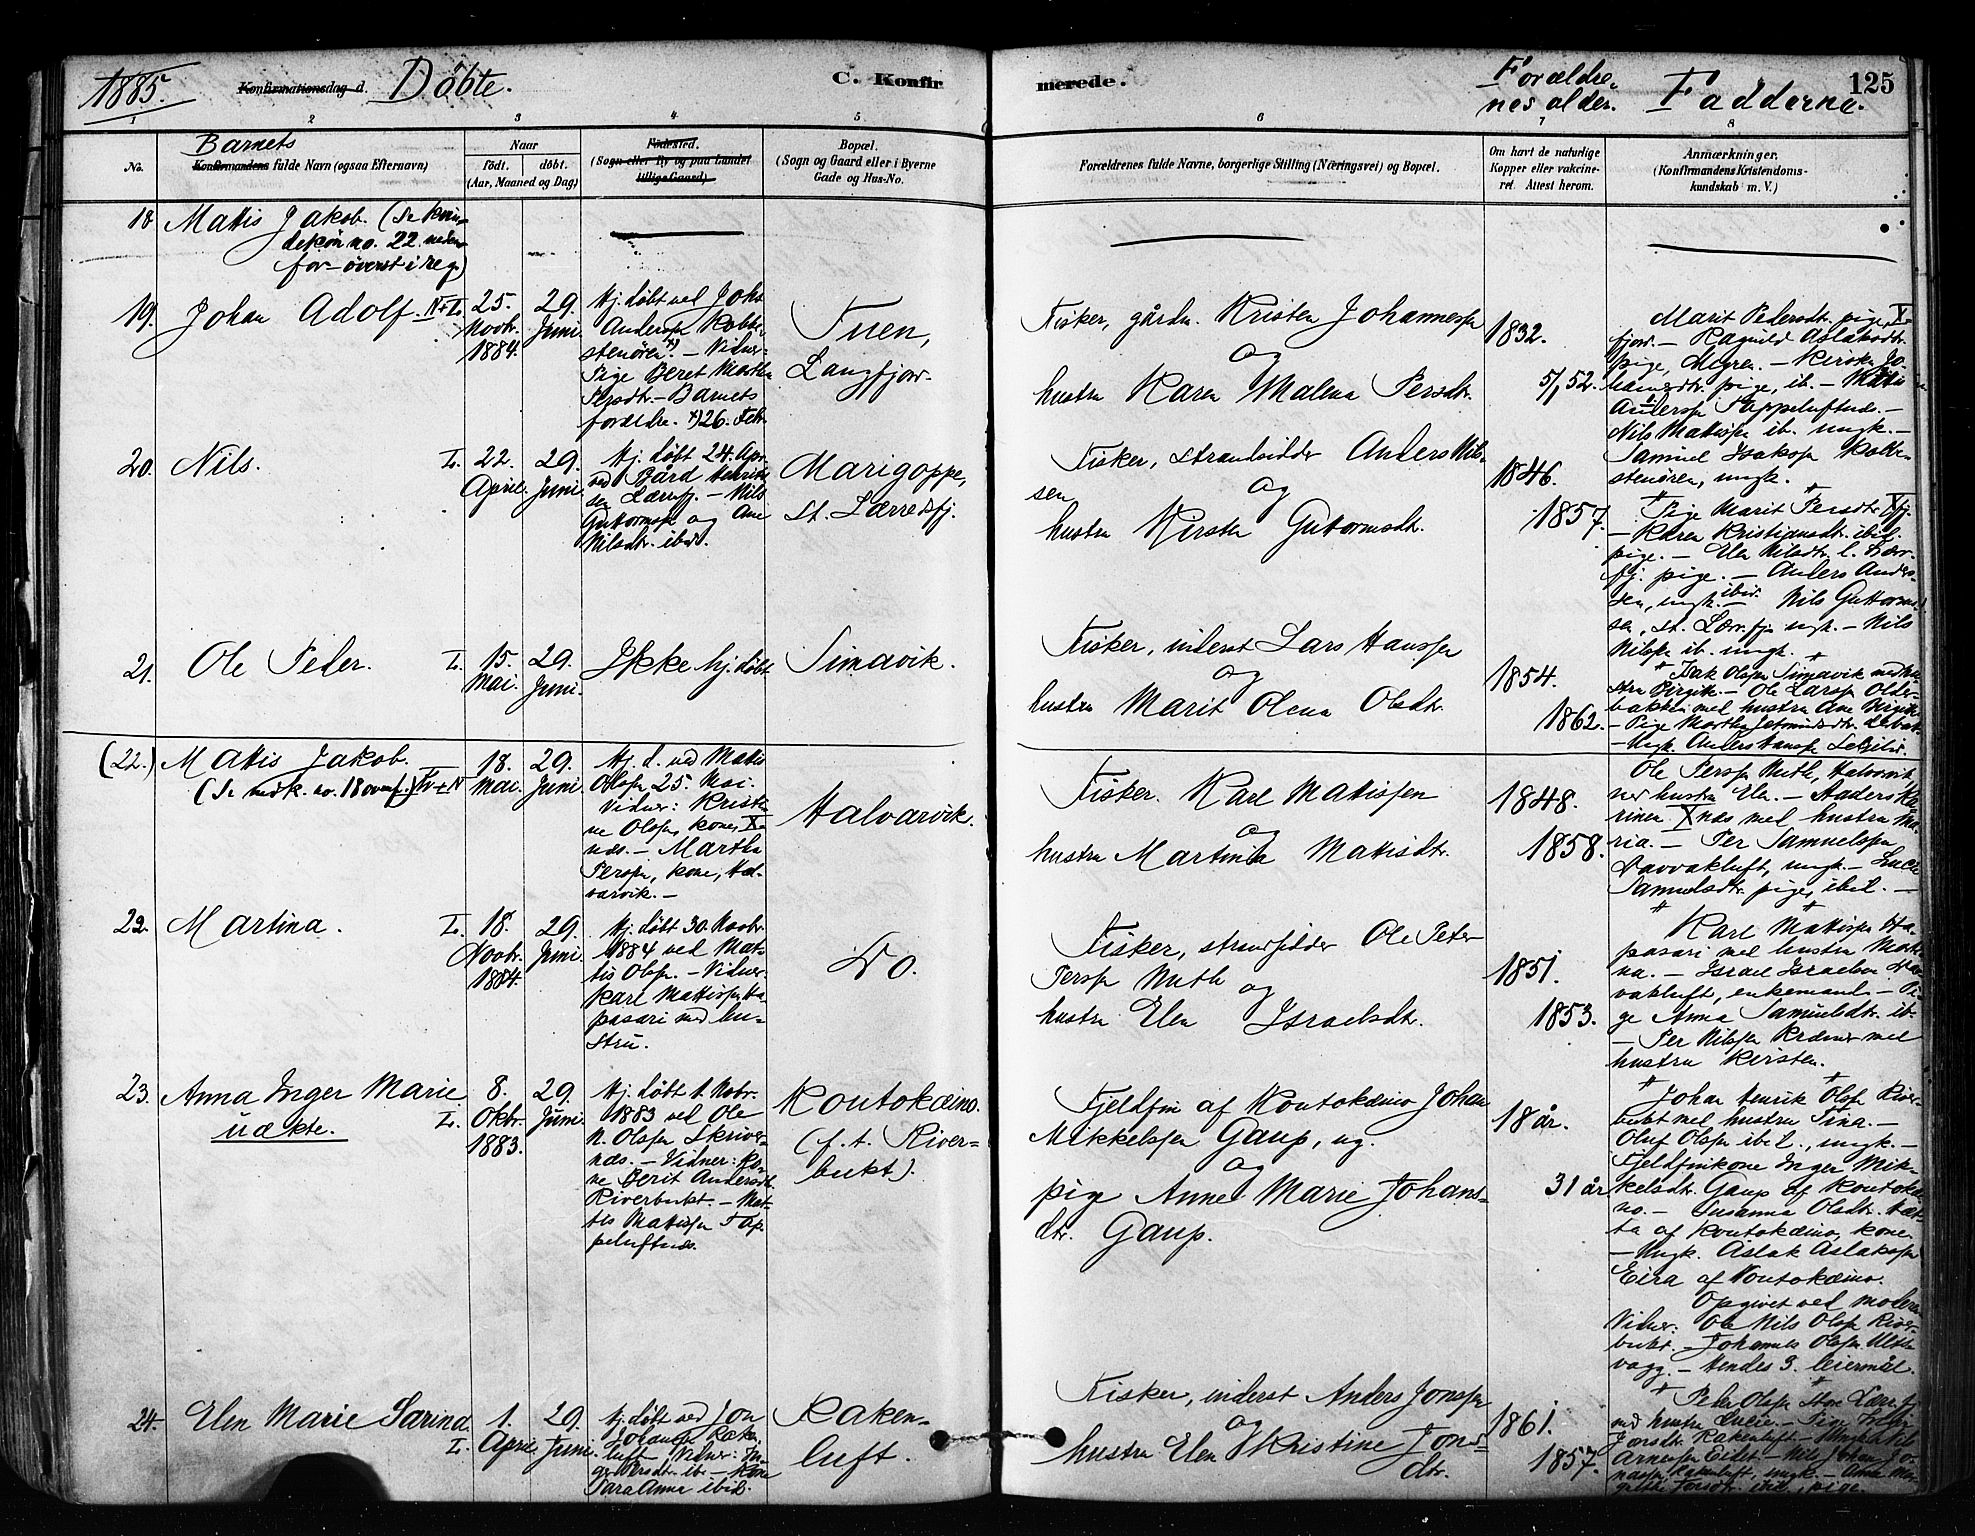 1885.
Konfirmationsdag d. Döbte.
C. Konfirmerede.
Forældrenes alder.
Fadderne.
125
1 2 3 4 5 6 7 8
No.
Barnets
Konfirmandens fulde Navn (ogsaa Efternavn)
Naar
födt. döbt.
(Aar, Maaned og Dag)
Födested.
(Sogn eller By og paa Landet
tillige Gaard)
Bopæl.
(Sogn og Gaard eller i Byerne
Gade og Hus-No.
Forældrenes fulde Navne, borgerlige Stilling (Næringsvei) og Bopæl.
Om havt de naturlige
Kopper eller vakcine-
ret. Attest herom.
Anmærkninger.
(Konfirmandens Kristendoms-
kundskab m. V.)
18 Mattis Jakob. (Se kvin-
dekøn no. 22 neden-
for - överst i reg.)
19. Johan Adolf. N+L.
25.
Novbr.
1884.
29.
Juni.
Hj. döbt ved Johs
Anderssen Kobbe-
stenören x). - Vidner
Pige Beret Martha
Persdtr. - Barnets
forældre. x) 26. Febr.
Tuen,
Langfjor.
Fisker, gårdm. Kristen Johannessen
og
hustru Karen Malena Persdtr.
1832.
5/1 52.
Marit Pedersdt. pige, X-
fjor. - Ragnild Aslaksdtr.
pige,
pige, ib. - Mattis
Anderssen Tappeluftnes. -
Nils Mattissen ib. ungk. -
Samuel Isaksen Kobbe-
stenören, ungk.
20. Nils. L.
22.
April.
29.
Juni.
Hj. döbt 24. Apr.
ved Bård Henrik-
sen Lærrfj. - Nils
Guttormsen og Ane
Nilsdtr. ibid.
Marigoppe,
St. Lærredsfj.
Fisker, strandsidder Anders Nils-
sen
og
hustru Kirsten Guttormsdtr.
1846.
1857.
Pige Marit Persdtr Xfj.
- Karen Kristiansdtr. ibid.
pige. - Elen Nilsdtr. l. Lærr-
fj. pige. - Anders Anders-
sen, ungk. ibid. - Nils Guttorm-
sen, St. Lærr.fj. ungk. - Nils
Nilssen ib. ungk.
21. Ole Peder. L.
15.
Mai.
29.
Juni.
Ikke hj. döbt
Simavik.
Fisker, inderst Lars Hanssen
og
hustru Marit Olena Olsdtr.
1854.
1862.
Isak Olsen Simavik med hu-
stru Birgit. - Ole Larsen Older-
bakken med hustru Ane Birgit.
- Pige Martha
- Ungk. Anders Hanssen
(22.) Mattis Jakob.
(Se mdk. no. 18 ovenf.) Kv+N
18.
Mai.
29.
Juni.
Hj. d. ved Mattis
Olsen 25. Mai.
Vidner: Kristi-
ne Olsen, kone, X-
næs. - Martha
Persen, kone, Hal-
varvik. -
Halvarvik.
Fisker. Karl Mattissen
og
hustru Martina Mattisdtr.
1848.
1858.
Ole Persen Muth, Halvarvik,
med hustru Elen. - Anders Ka-
rinen Xnæs med hustru Ma-
ria. - Per Samuelssen
Davvakluft, ungk. - Lucie
Samuelsdtr. pige, ibid. -
22. Martina. L.
18.
Novbr.
1884.
29.
Juni.
Hj. döbt 30. Novbr.
1884 ved Mat-
tis Olsen. - Vidner
Karl Mattissen Ha-
pasari med hu-
stru.
Do.
Fisker, strandsidder Ole Peter
Persen Muth
og
hustru Elen Israelsdtr.
1851.
1853.
Karl Mattissen Ha-
pasari med hustru Marti-
na. - Israel Israelsen Dav-
vakluft, enkemand. - Pi-
ge Anna Samuelsdtr. ib.
- Per Nilssen Kræmer med
hustru Kirsten.
23. Anna Inger Marie L.
uækte.
8.
Oktbr.
1883.
29.
Juni.
Hj. döbt 1. Novbr.
1883 ved Ole
N. Olsen Skriver-
næs. - Vidner: Ko-
ne Berit Andersdt.
Riverbukt. - Mat-
tis Mattissen Tap-
peluftnes.
Koutokæino.
(f. t. River-
bukt).
Fjeldfin af Koutokæino Johan
Mikkelssen Gaup, ug.
og
pige Anne Marie Johans-
dtr. Gaup.
18 år.
31 år
Johan Henrik Olsen River-
bukt med hustru Tina. -
Oluf Olsen ibid., ungk. -
Fjeldfinkone Inger Mik-
kelsdtr. Gaup af Koutokæi-
no. - Susanna Olsdtr. Hæt-
ta af Koutokæino, kone.
- Ungk. Aslak Aslaksen
Eira af Koutokæino.
Opgivet ved moderen
Vidner: Ole Nils Olsen River-
bukt. - Johannes Olsen
vagg. - Hendes 3. leiermål.
24. Elen Marie Sarina L.
1.
April.
29.
Juni.
Hj. döbt ved Jon
Johanssen Raken-
luft. - Vidner: In-
ger Persdtr. ib. - Kone
Sara Anna ibid.
Raken-
luft.
Fisker, inderst Anders Jonssen
og
hustru Elen Kristine Jons-
dtr.
1861.
1857.
Peder Olsen Store Lærr.fj.
med hustru Lucie. - Pige
Rakenluft. - Ungk.
Arnessen Eidet. - Nils Johan
Rakenluft, ungk. - Anne Mar-
grethe